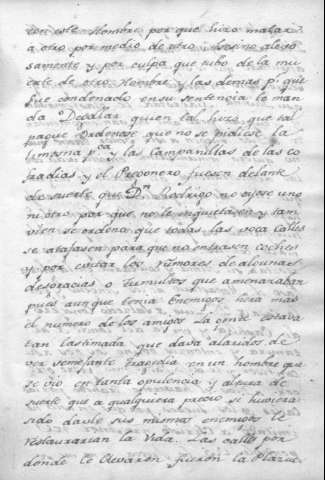 con este Hombre por que hizo matar
a otro por medio de otro; loseno alebo
samente y por culpa que tubo de la mu
erte de otro Hombre y las demas pr que
fue condenado en su sentencia le man
da Degollar quien tal hizo que tal
pague Ordenose que no se pidiese la
limosna pca y las Campanillas de las co
fradias y el Pregonero fuesen delante
de suerte que Dn Rodrigo no oyese uno
ni otro por que no le inquietasen y tam
vien se ordeno que todas las voca Calles
se atajasen para que no entrasen coches
y por evitar los rumores de algunas
desgracias o tumultos que amenazaban
pues aunque tenia Enemigos hera mas
el numero de los amigos La gente estava
tan lastimada que dava alaridos de
ver semejante tragedia en un hombre que
se vio en tanta opulencia y altura de
suerte que a qualquiera precio si hubiera
sido dable sus mismos enemigos le
restauravian la Vida. Las calles por
donde le llevaron fueron la Plazue